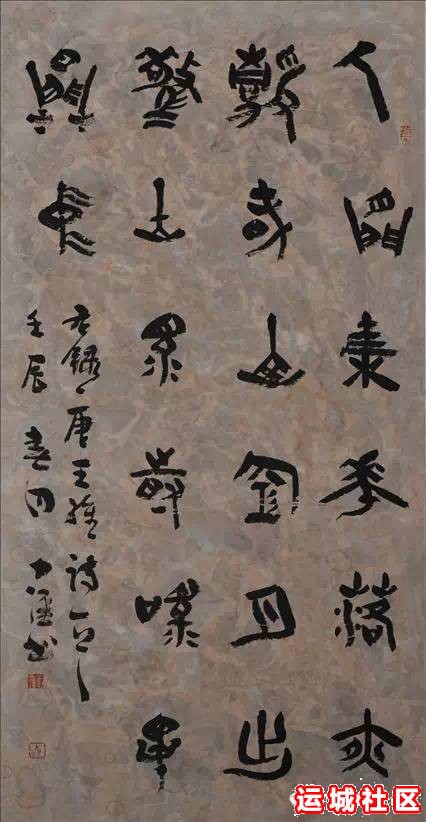 人閒桂花落夜
靜春山空月出
驚山鳥時鳴春
澗中
右錄唐王維詩一首
壬辰春月
运城社区